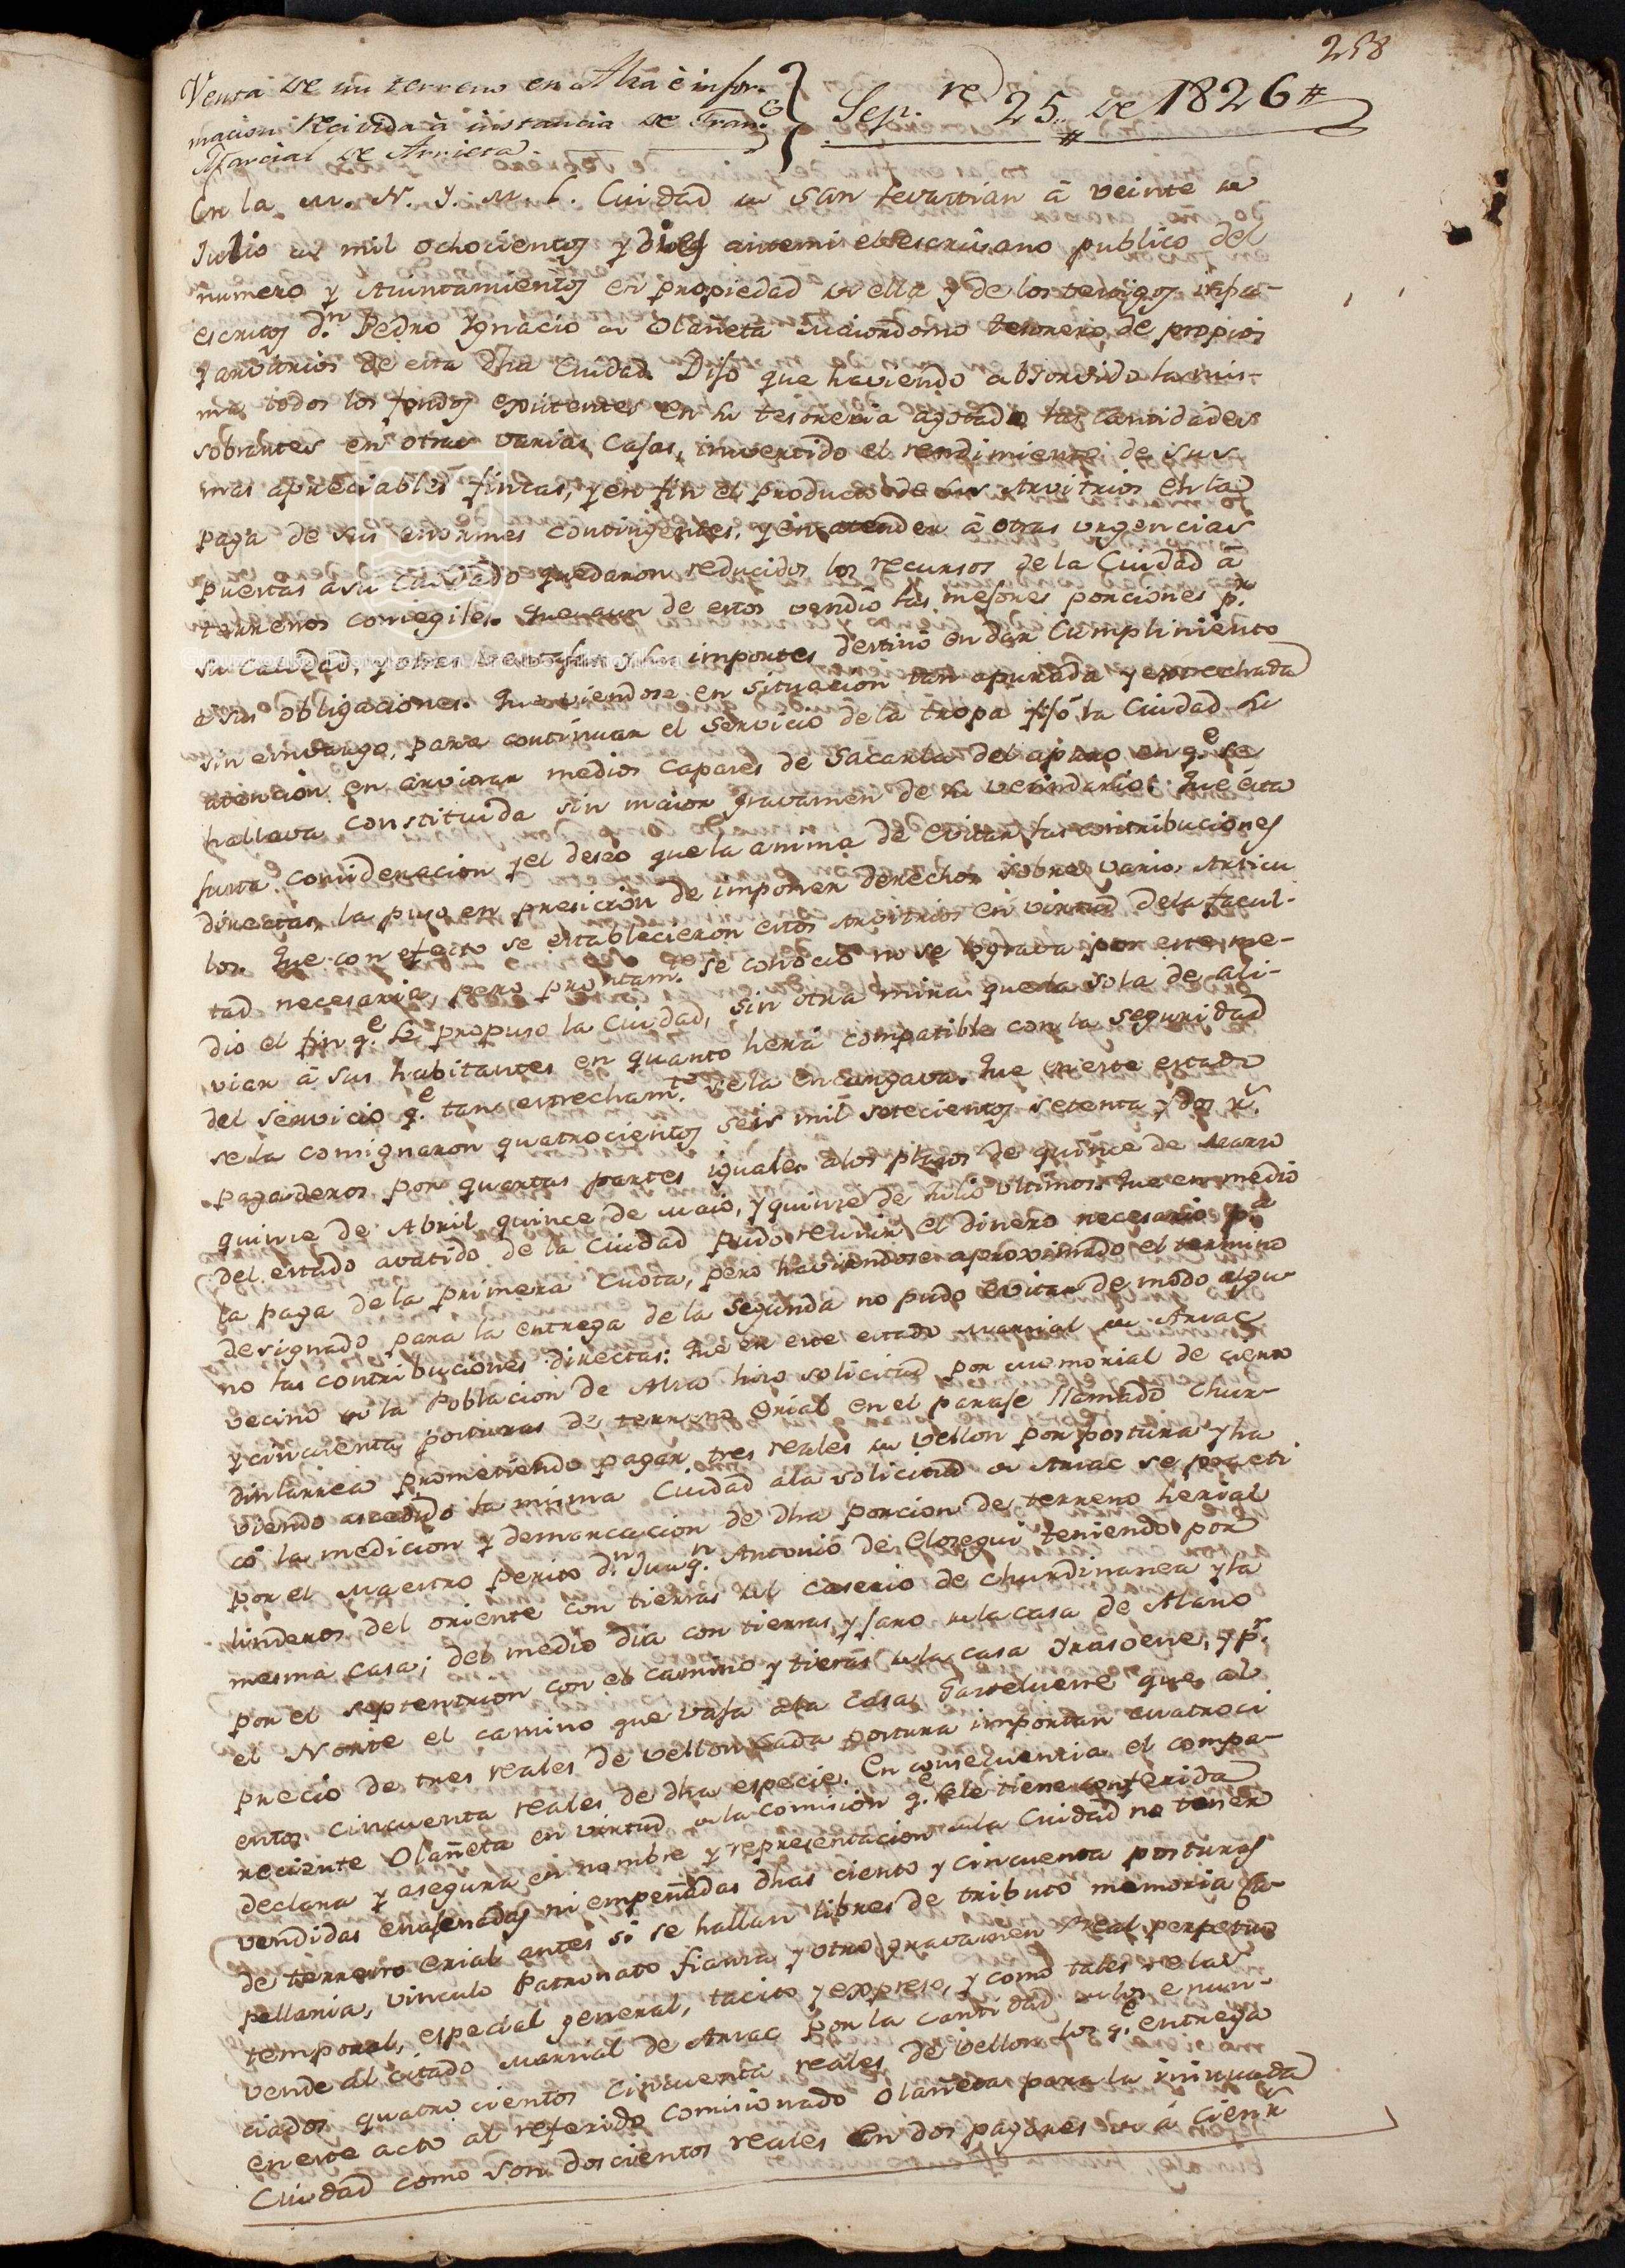 258
Venta de un terreno en Alza è infor-
macion Recivida à instancia de Fran.co
Marcial de Arrieta.
Sep.re 25 de 1826 #
En la M. N. y. M. L. Ciudad de San Sevastian â veinte de
Julio de mil ochocientos y diez ante mi el escrivano publico del
numero y Aiuntamientos en propiedad de ella y de los testigos infra-
escritos d.n Pedro Ygnacio de Olañeta Maiordomo tesorero de propios
y arvitrios de esta dha Ciudad Dijo que haviendo absorvido la mis-
ma todos los fondos existentes en su tesoreria agotado las cantidades
sobrantes en otras varias Cajas, invertido el rendimiento de sus
mas apreciables fincas, y en fin el producto de sus Arvitrios en la
paga de sus enormes contingentes, y en atender â otras urgencias
puestas a su Cuidado quedaron reducidos los recursos de la Ciudad â
terrenos conxegiles. Que aun de estos vendiô las mejores porciones p.r
su calidad, y otras ventajas y sus importes destinô en dar Cumplimiento
a sus obligaciones. Que viendose en situacion tan apurada y estrechada
sin envargo, para continuar el Servicio de la tropa fijô la Ciudad su
atencion en arvitrar medios Capases de Sacarla del apuro en q.e se
hallava constituida sin maior gravamen de su vecindario: Que esta
justa consideracion y el deseo que la anima de Evitar las contribuciones
directas la puso en presicion de imponer derechos sobre varios Articu
los. Que con efecto se establecieron estos Arvitrios en virtud de la facul-
tad necesaria, pero prontam.te se conociô no se lograva por este me-
dio el fin q.e se propuso la Ciudad, sin otra mira que la sola de ali-
viar â sus habitantes en quanto herâ compatible con la seguridad
del servicio q.e tan estrecham.te se la encargava. Que en este estado
se la consignaron quatrocientos seis mil setecientos setenta y dos r.s
pagaderos por quartas partes iguales a los plazos de quince de Marzo
quince de Abril quince de Maio, y quince de Julio ultimos. Que en medio
del estado avatido de la Ciudad pudo reunir el dinero necesario p.a
la paga de la primera Cuota, pero haviendose aproximado el termino
designado para la entrega de la segunda no pudo evitar de modo algu-
no las contribuciones directas: Que en este estado Marcial de Arzac
vecino de la Poblacion de Alza hizo solicitud por memorial de ciento
y cincuenta posturas de terreno Erial en el paraje llamado Chur-
dinlarrea prometiendo pagar tres reales de vellon por postura y ha
viendo accedido la misma Ciudad a la solicitud de Arzac se practi
cô la medicion y demarcacion de dha porcion de terreno herial
por el Maestro perito d.n Juaq.n Antonio de Elosegui teniendo por
linderos del oriente con tierras del Caserio de Churdinarrea y la
mesma casa; del medio dia con tierras, y jaro de la casa de Alano
por el septentrion con el camino y tierras de la casa Yrasoene, y p.r
el Norte el camino que vaja a la casa Garveluene que al
precio de tres reales de vellon cada postura importan cuatroci
entos cincuenta reales de dha especie. En consecuencia el compa-
reciente Olañeta en virtud de la comision q.e se le tiene conferida
declara y asegura en nombre y representacion de la Ciudad no tener
vendidas enajenadas ni empeñadas dhas ciento y cincuenta posturas
de terreno erial antes si se hallan libres de tributo memoria Ca-
pellania, vinculo Patronato fianza y otro gravamen real perpetuo
temporal, especial general, tacito y expreso, y como tales se las
vende al citado Marcial de Arzac por la cantidad de los enun-
ciados quatro cientos cincuenta reales de vellon los q.e entrega
en este acto al referido comisionado Olañeta para la insinuada
Ciudad como son doscientos reales en dos pagares de â cien r.s